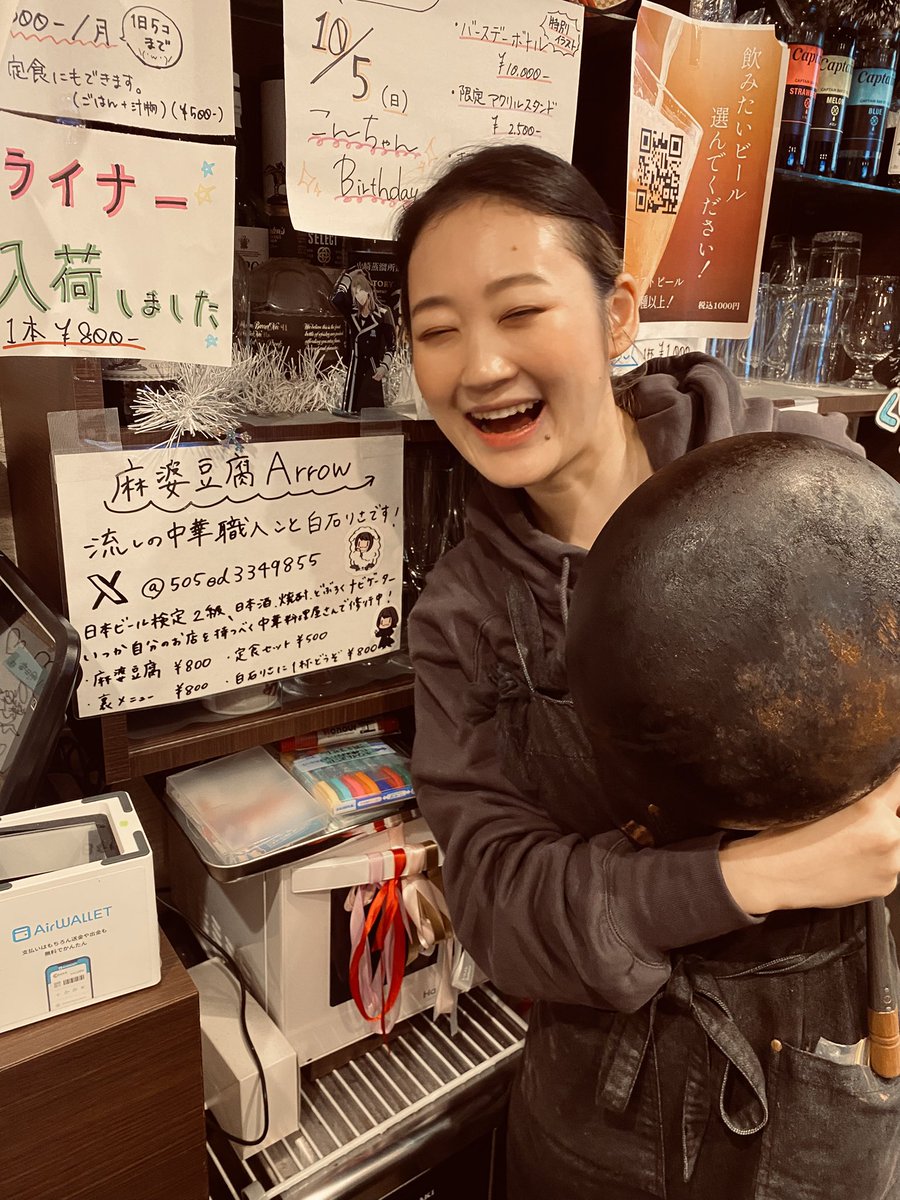 000-/月
1日5コ
まで
定食にもできます。
(ごはん+汁物)(¥500-)
ライナー
入荷しました
1本 ¥800-
10/5(日)
こんちゃん
Birthday
・バースデーボトル
特別
イラスト
¥10,000-
・限定アクリルスタンド
¥2,500-
飲みたいビール
選んでください!
種以上!
税込1000円
Captain
STRAW
Captain
MELON
Capta
BLUE
SELECT
麻婆豆腐 Arrow
流しの中華職人こと白石りさです!
X @505ed3349855
日本ビール検定2級、日本酒、焼酎、どぶろくナビゲーター
いつか自分のお店を持つべく中華料理屋さんで修行中!
・麻婆豆腐 ¥800 ・定食セット ¥500
・裏メニュー ¥800 ・白石りさに1杯どうぞ ¥800
AirWALLET
支払いはもちろん送金や出金も
無料でかんたん